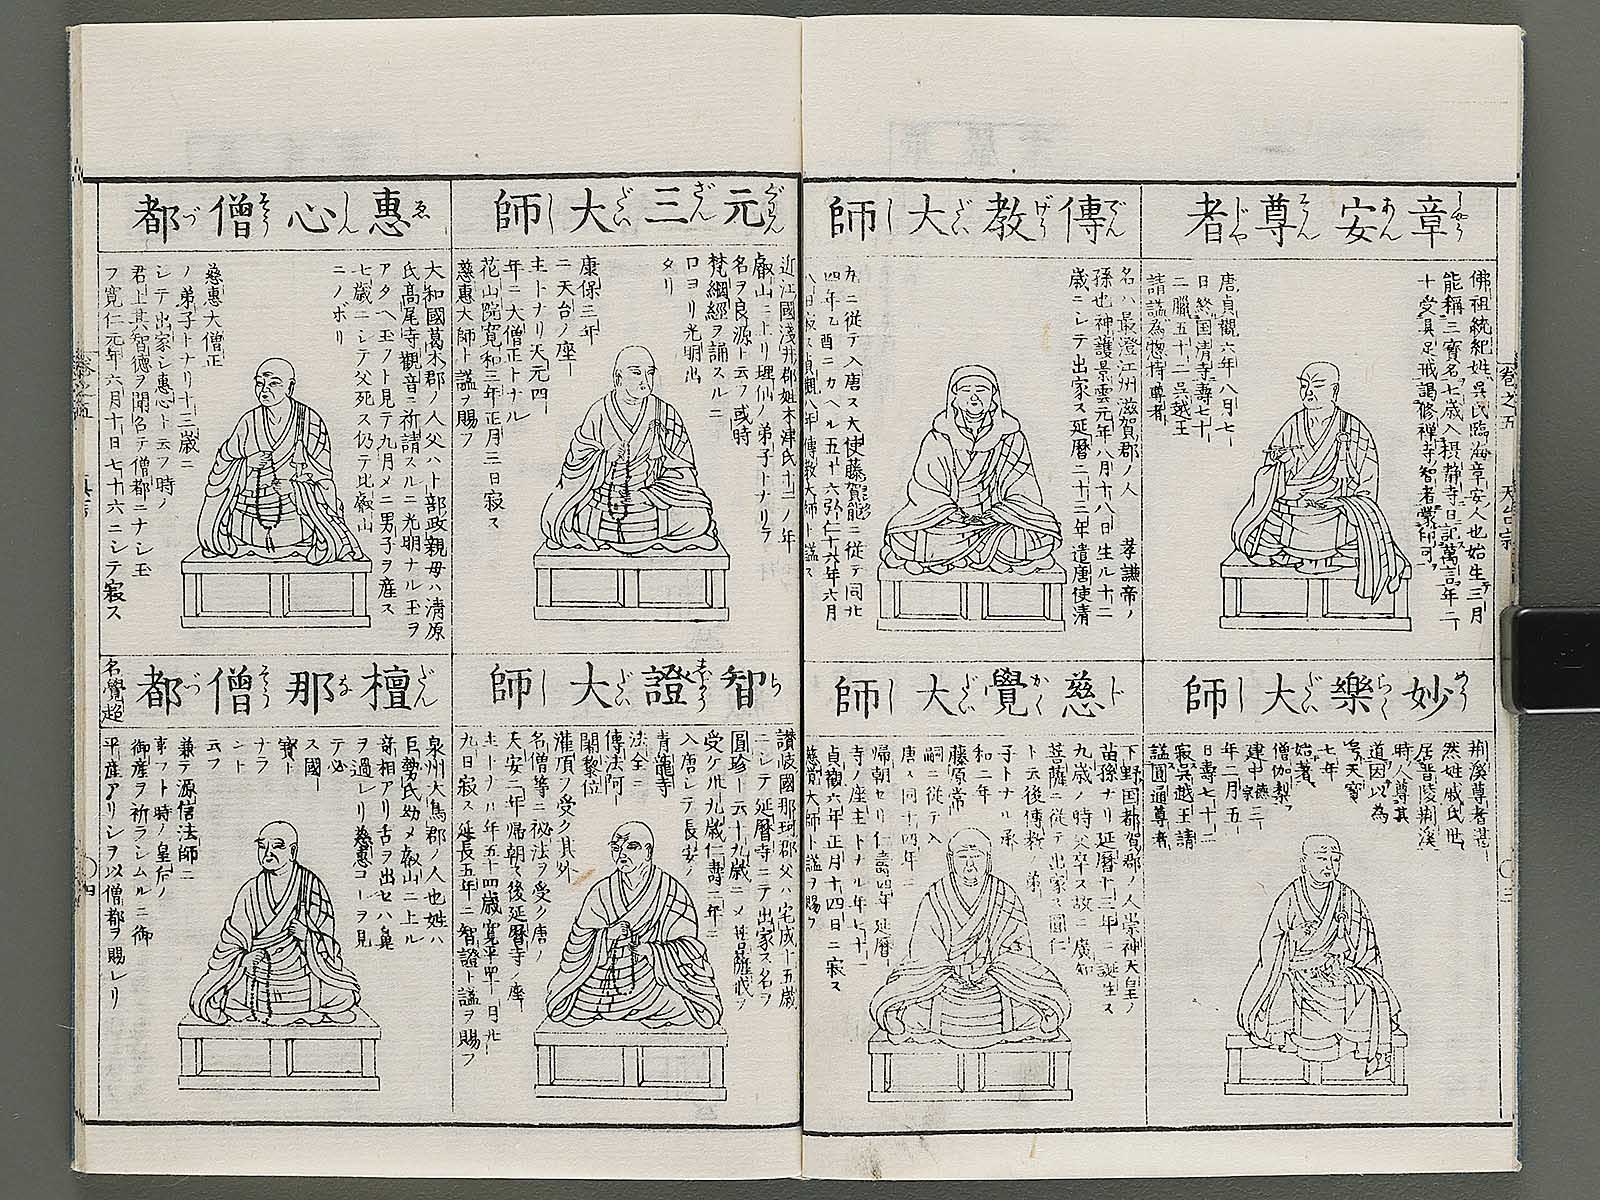 章安尊者
佛祖統紀姓吳氏臨海章安人也始生三月
能稱三寶名七歳入摂静寺日記萬言年二
十受具足戒謁修禅寺智者蒙印可
唐貞觀六年八月七
日終国清寺壽七十
二臘五十二呉越王
請謚為惣持尊者
妙樂大師
荊溪尊者湛
然姓戚氏世
居晋陵荊溪
時人尊其
道因以為
号天寳
七年
始著
僧伽梨
建中德宗三
年二月五
日壽七十二
寂呉越王請
謚圓通尊者
傳教大師
名ハ最澄江州滋賀郡ノ人　孝謙帝ノ
孫也神護景雲元年八月十八日生ル十二
歳ニシテ出家ス延暦二十二年遣唐使清
九ニ從テ入唐ス大使藤賀能ニ從テ同北
四年乙酉ニカヘル五廿六弘仁十六年六月
八日寂ス貞觀八年傳教大師ト謚ス
慈覺大師
下野国都賀郡ノ人崇神天皇ノ
苗孫ナリ延暦十三年ニ誕生ス
九歳ノ時父卒ス故ニ廣知
菩薩ニ從テ出家ス圓仁
ト云後傳教ノ弟
子トナル承
和二年
藤原常
嗣ニ從テ入
唐ス同十四年ニ
帰朝セリ仁壽四年延暦
寺ノ座主トナル年七十一
貞觀六年正月十四日ニ寂ス
慈覚大師ト謚ヲ賜フ
元三大師
近江國淺井郡姓木津氏十二ノ年
叡山ニ上リ理仙ノ弟子トナリテ
名ヲ良源ト云フ或時
梵綱經ヲ誦スルニ
口ヨリ光明出
タリ
康保三年
ニ天台ノ座
主トナリ天元四
年ニ大僧正トナル
花山院寛和三年正月三日寂ス
慈惠大師ト謚ヲ賜フ
智證大師
讃岐國那珂郡父ハ宅成十五歳
ニシテ延暦寺ニテ出家ス名ヲ
圓珍ト云十九歳ニメ菩薩戒ヲ
受ク卅九歳仁壽二年ニ
入唐シテ長安ノ
青龍寺
法全ニ
傳法阿
闍黎位
灌頂ヲ受ク其外
名僧等ニ祕法ヲ受ク唐ノ
天安二年帰朝ス後延暦寺ノ座
主トナル年五十四歳寛平四年　日九
九日寂ス延長五年ニ智證ト謚ヲ賜フ
惠心僧都
大和國葛木郡ノ人父ハト部政親母ハ清原
氏髙尾寺觀音ニ祈請スルニ光明ナル玉ヲ
アタヘ玉フト見テ九月メニ男子ヲ産ス
七歳ニシテ父死ス仍テ比叡山
ニノボリ
慈惠大僧正
ノ弟子トナリ十三歳ニ
シテ出家シ惠心ト云フ時ノ
君上其智徳ヲ聞召テ僧都ニナシ玉
フ寛仁元年六月十日七十六ニシテ寂ス
檀那僧都
名覺超
泉州大鳥郡ノ人也姓ハ
巨勢氏幼メ叡山ニ上ル
奇相アリ舌ヲ出セハ鼻
ヲ過レリ慈惠コレヲ見
テ必
ス國
寳ト
ナラ
ント
云フ
兼テ源信法師ニ
事フト時ノ皇后ノ
御産ヲ祈ラシムルニ御
平産アリシヲ以僧都ヲ賜レリ
巻之五
天台宗